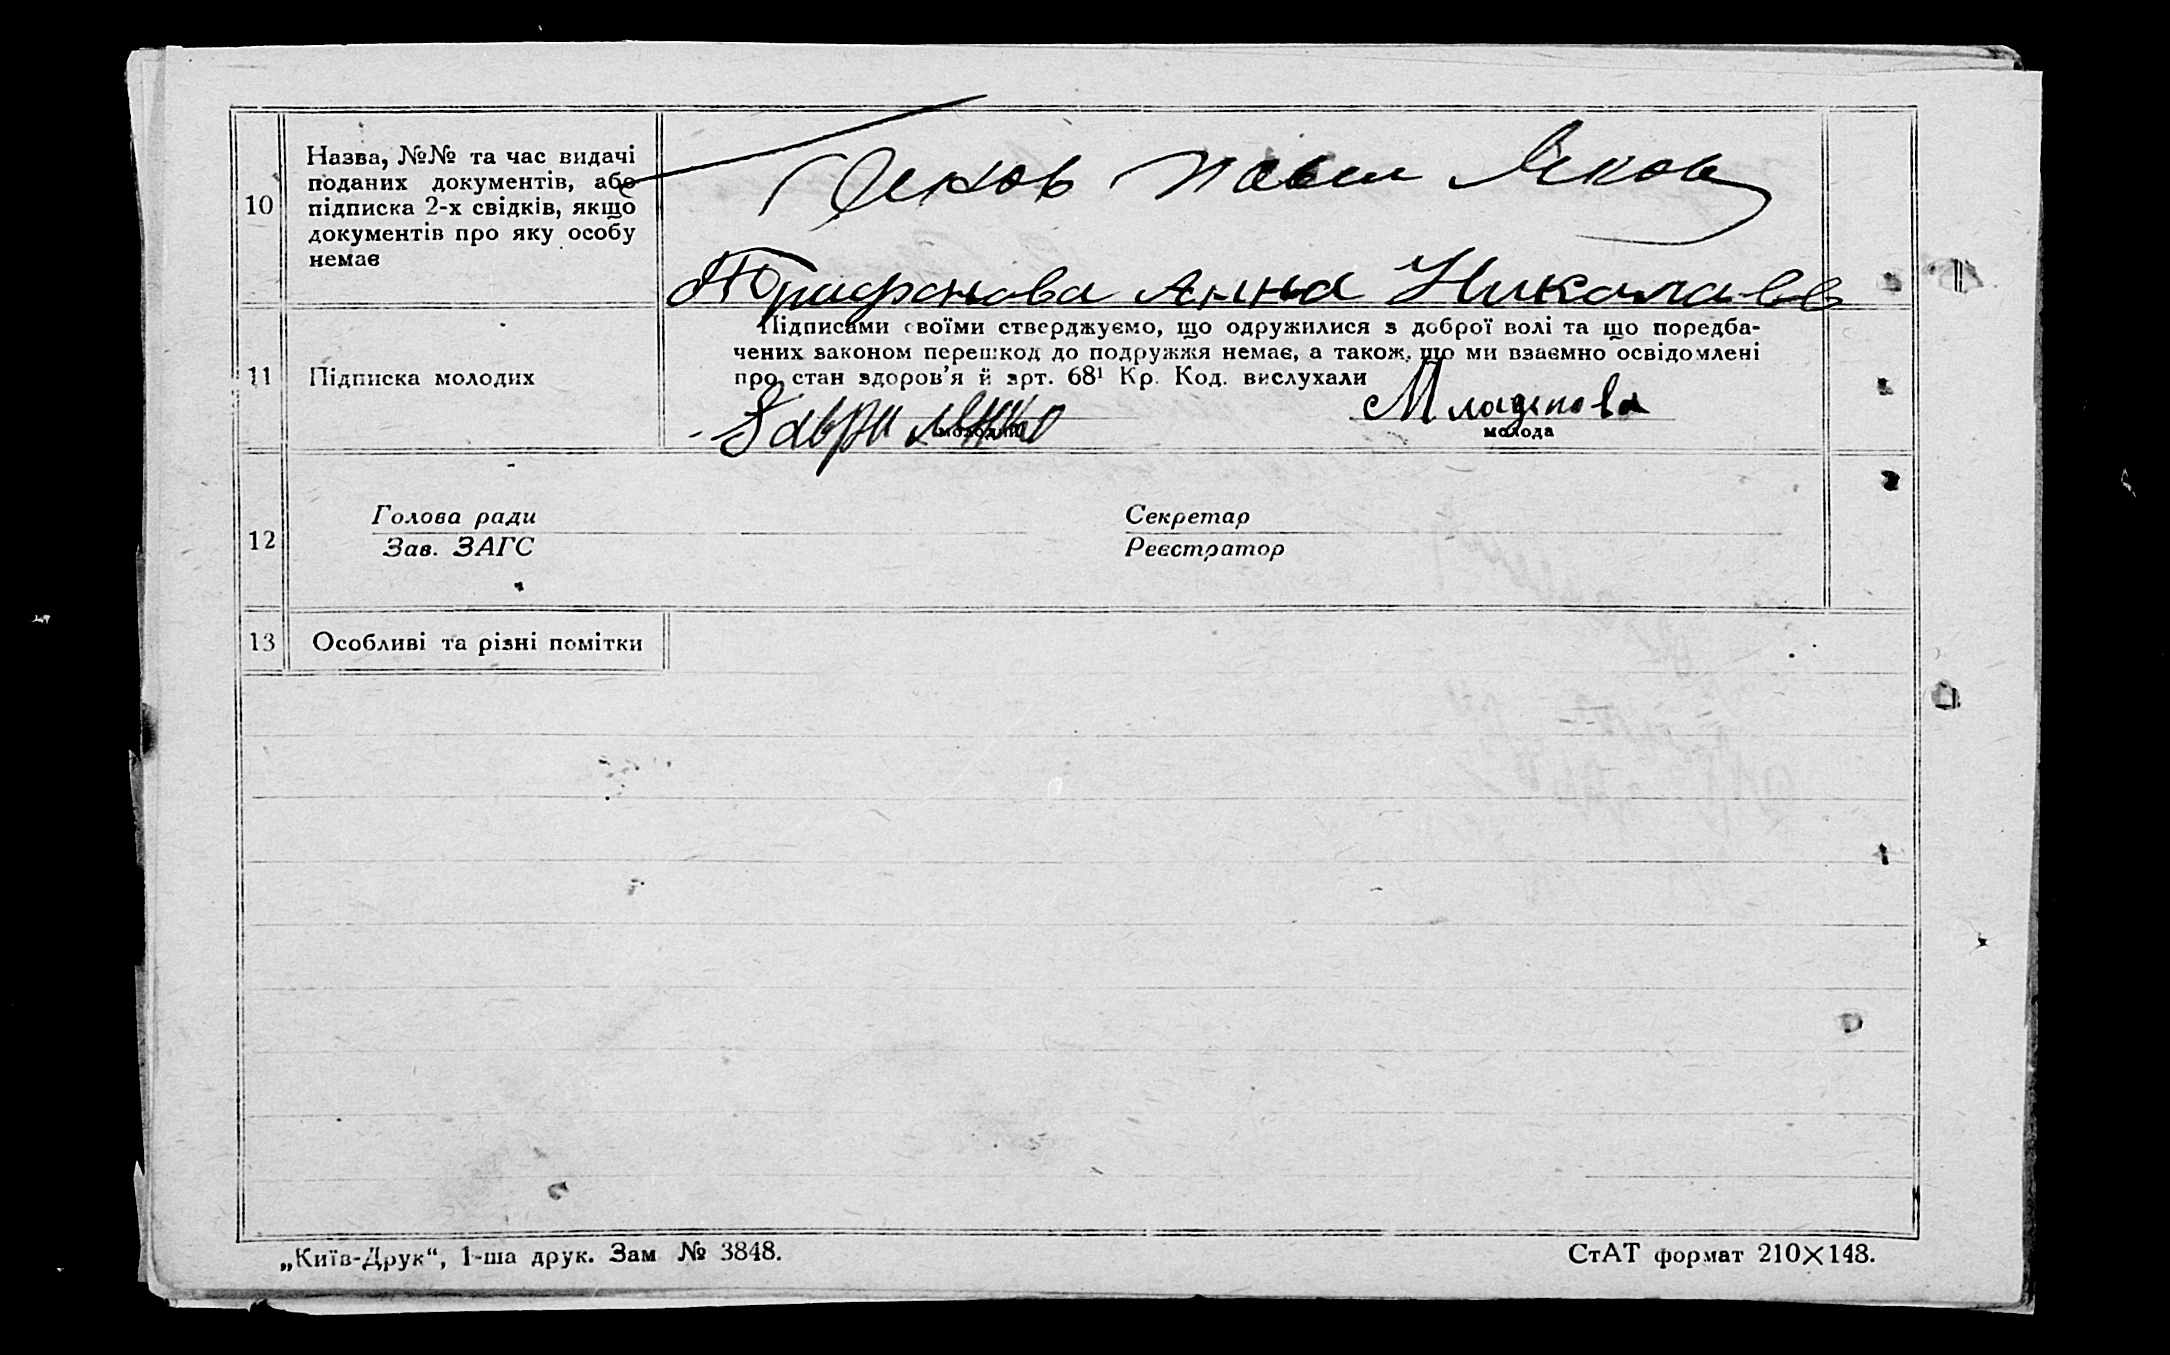 10
Назва, №№ та час видачі
поданих документів, або
підписка 2-х свідків, якщо
документів про яку особу
немає
Яков
Трифонова Анна Николаев
11
Підписка молодих
Підписами своїми стверджуємо, що одружилися з доброї волі та що передба-
чених законом перешкод до подружжя немає, а також, що ми взаємно освідомлені
про стан здоров'я й арт. 68¹ Кр. Код. вислухали
Гавриленко
Младенова
молодий
молода
12
Голова ради
Зав. ЗАГС
Секретар
Реєстратор
13
Особливі та різні помітки
„Київ-Друк“, 1-ша друк. Зам № 3848.
СтАТ формат 210×148.